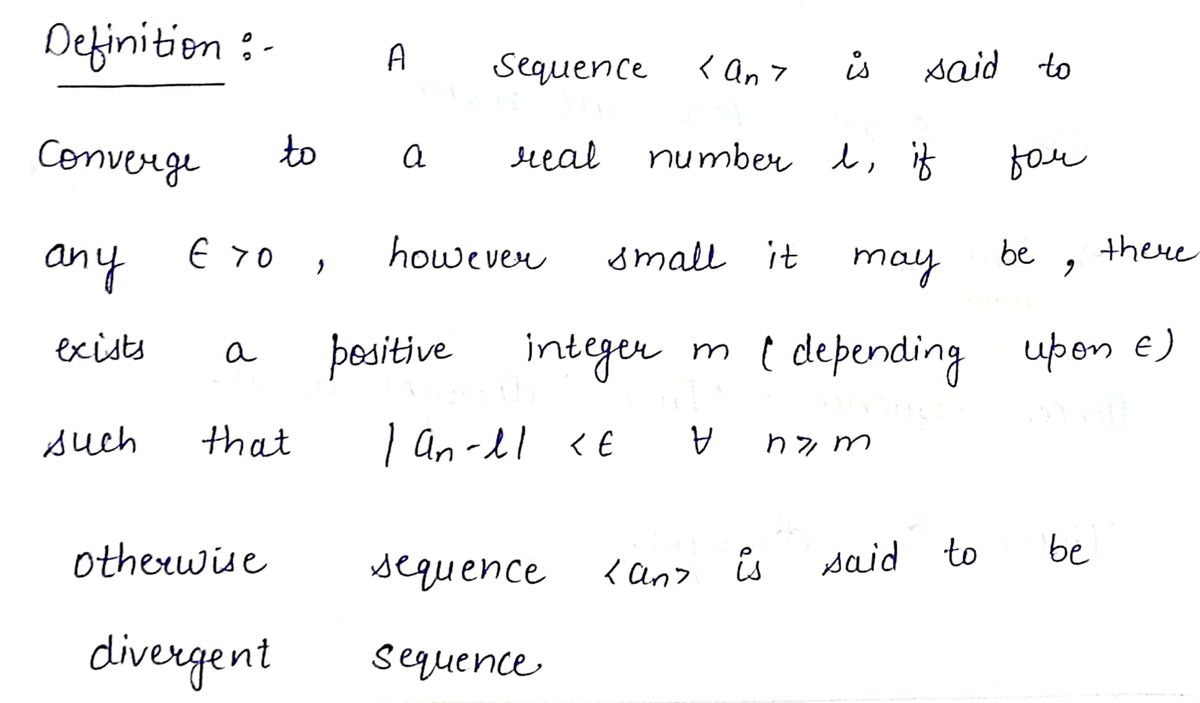 Definition :-   A sequence <an> is said to
Converge to a real number l, if for
any ϵ >0 , however small it may be , there
exists a positive integer m ( depending upon ϵ)
such that | an-l| <ϵ ∀ n⩾m
otherwise sequence <an> is said to be
divergent sequence